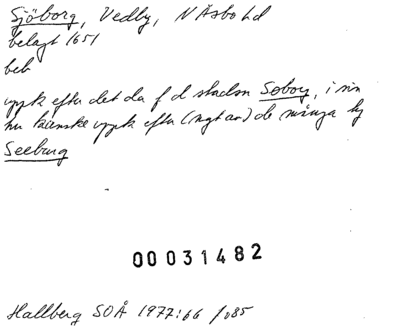 Sjöborg, Vedby, N Åsbo hd
belagt 1651
beb
uppk efter det da f d staden Soborg, i sin
tur kanske uppk efter (ngt av) de många ty
Seeburg
00031482
Hallberg SOÅ 1977:66 /085